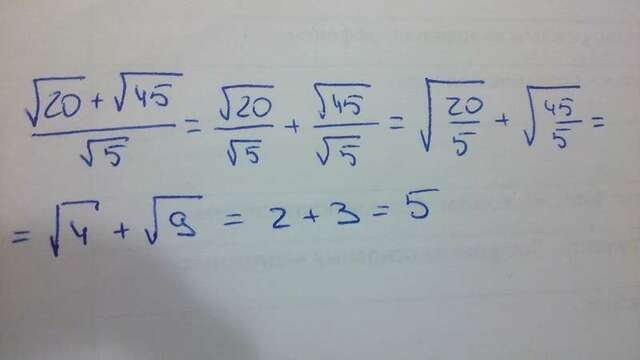 (√20 + √45)/√5 = √20/√5 + √45/√5 = √(20/5) + √(45/5) =
= √4 + √9 = 2 + 3 = 5